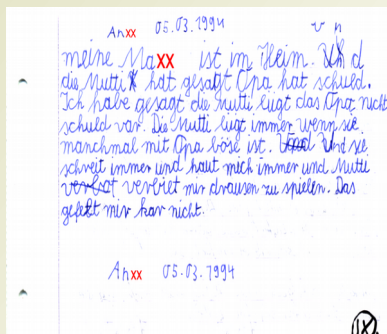 Anxx 05.03.1994
meine Maxx ist im Heim. Und
die Mutti hat gesagt Opa hat schuld.
Ich habe gesagt die Mutti lügt das Opa nicht
schuld war. Die Mutti lügt immer wenn sie
manchmal mit Opa böse ist. Und sie
schreit immer und haut mich immer und Mutti
verbiet mir drausen zu spielen. Das
gefält mir kar nicht.
Anxx 05.03.1994